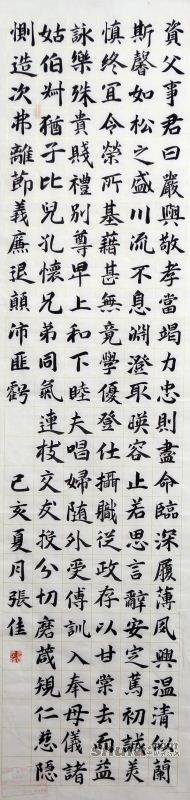 資父事君曰嚴與敬孝當竭力忠則盡命臨深履薄夙興温清似蘭
斯馨如松之盛川流不息淵澄取暎容止若思言辭安定篤初誠美
慎終宜令榮所基藉甚無竟學優登仕攝職從政存以甘棠去而益
詠樂殊貴賤禮別尊卑上和下睦夫唱婦随外受傅訓入奉母儀諸
姑伯叔猶子比兒孔懷兄弟同氣連枝交友投分切磨葴規仁慈隱
惻造次弗離節義廉退顛沛匪虧
己亥夏月張佳